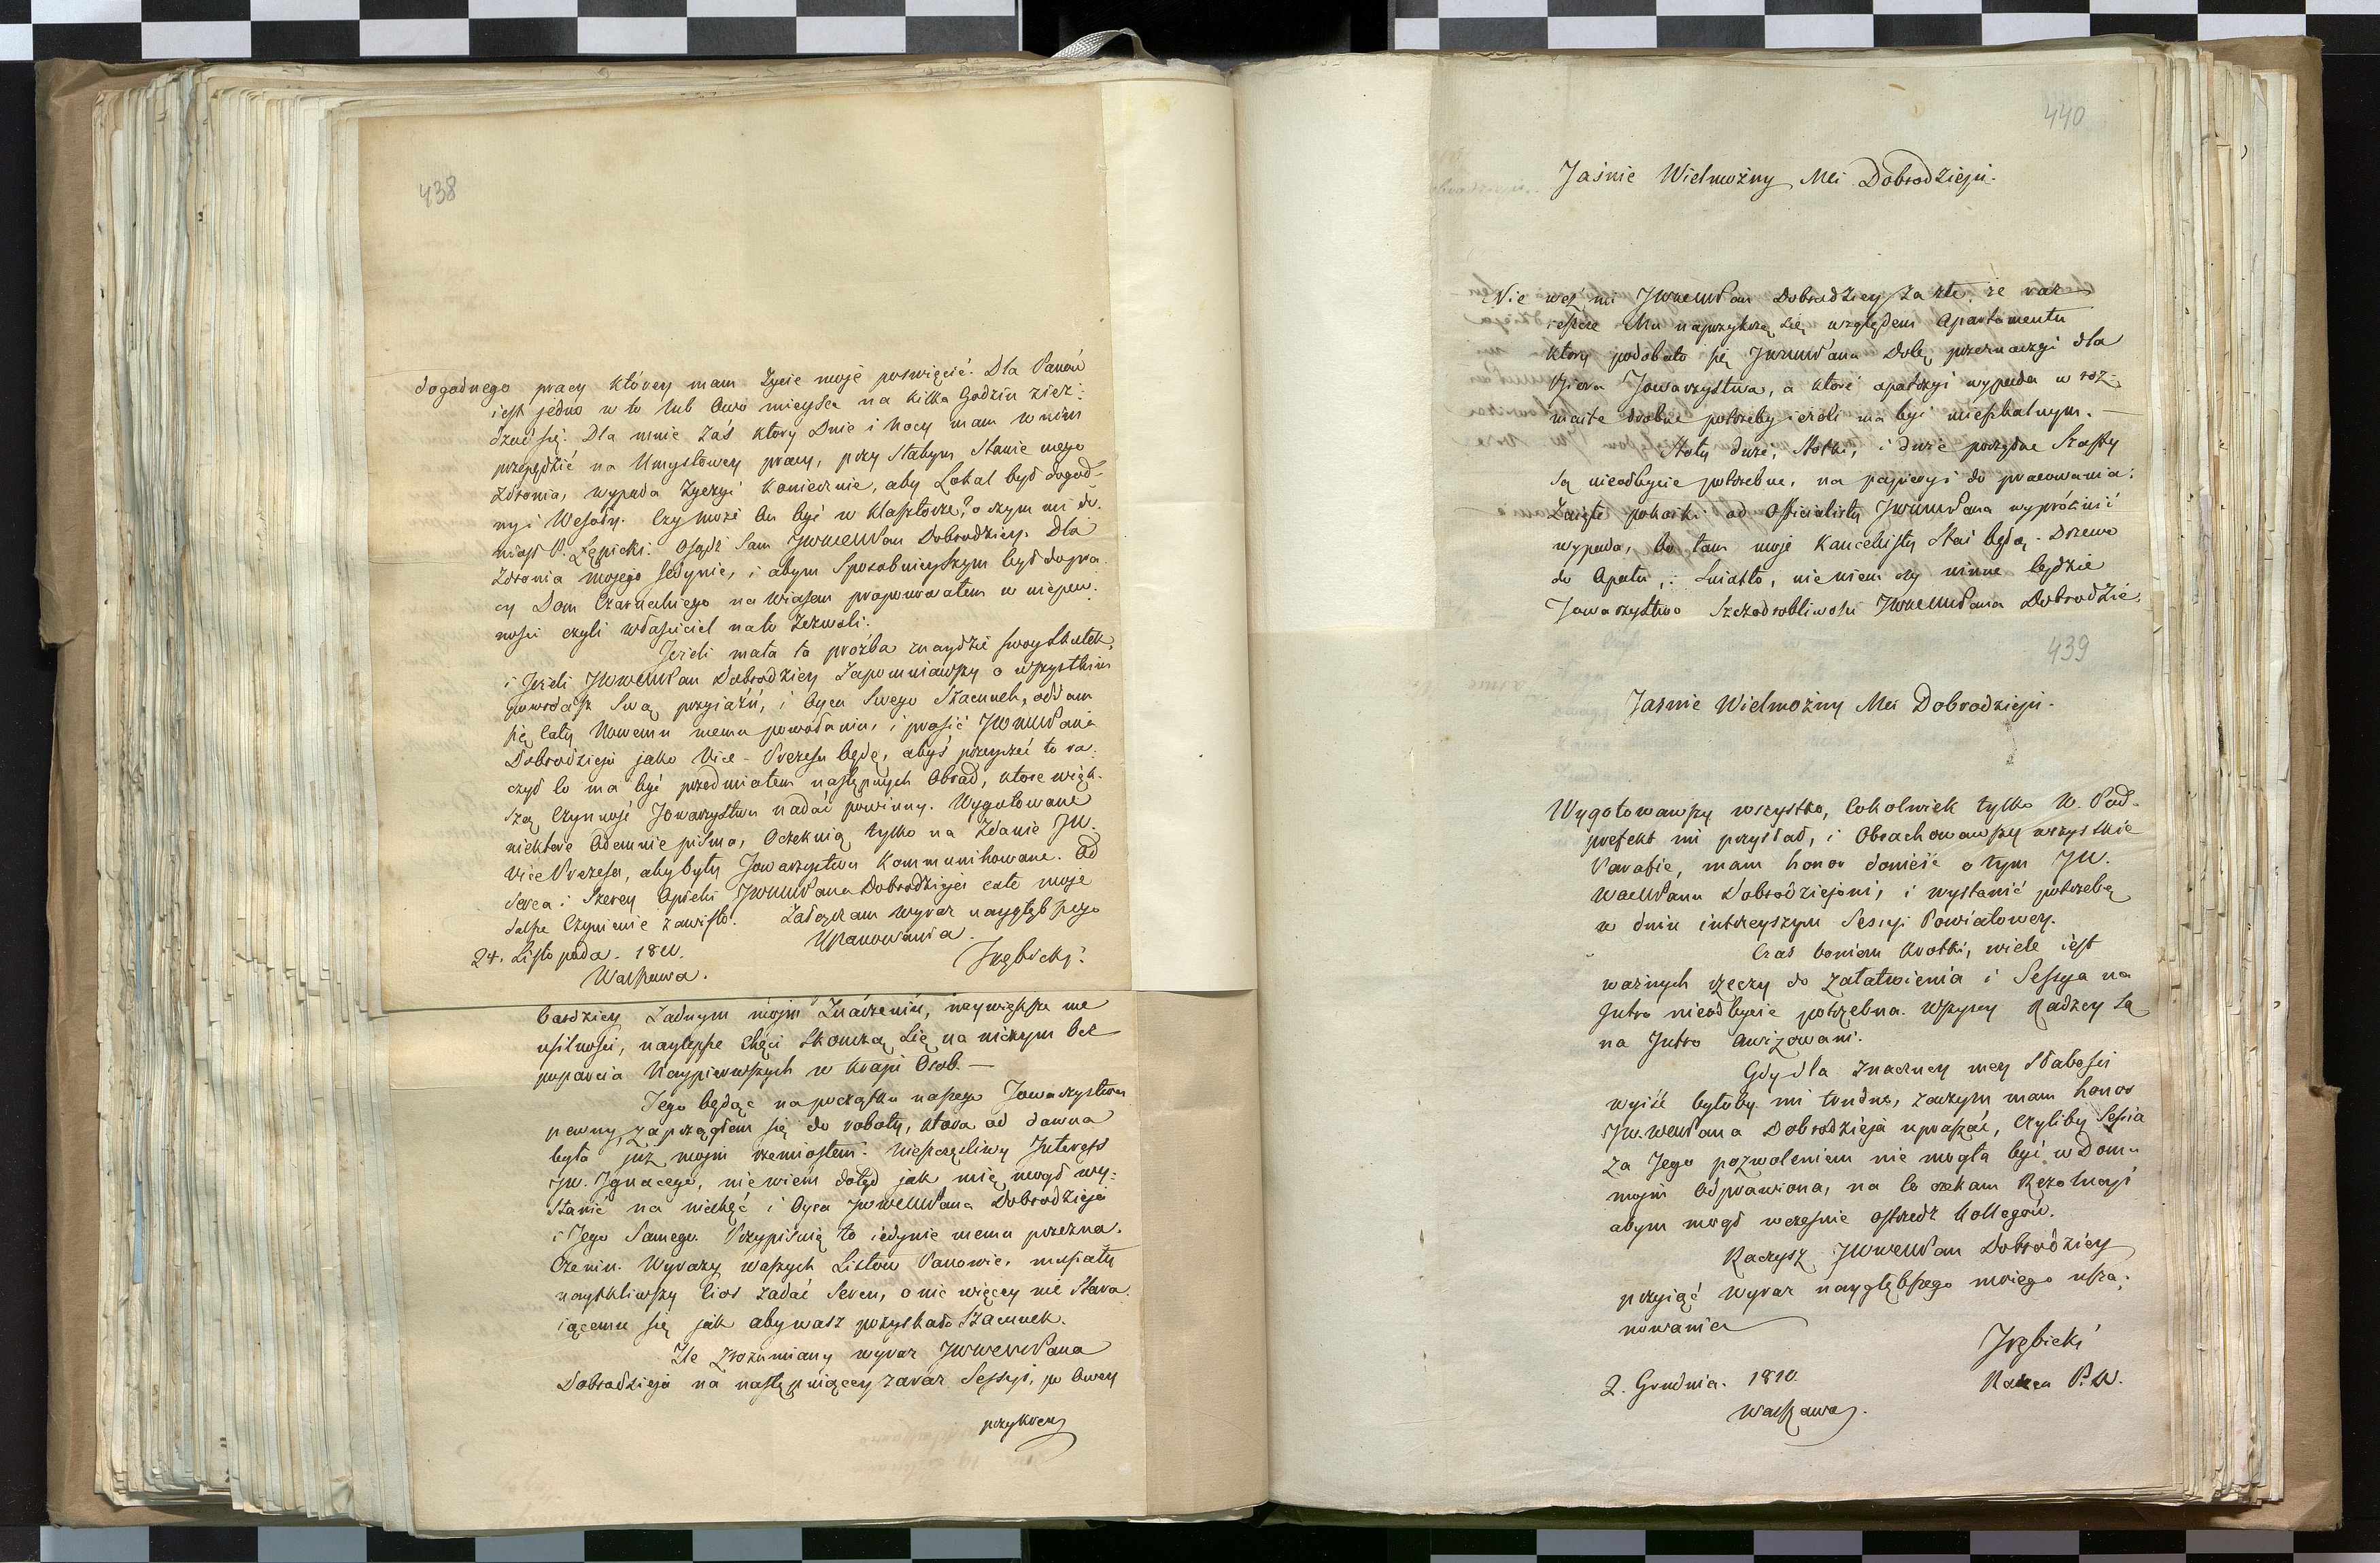 438
dogodnego pracy którey mam Życie moje poswięcić. Dla Panów
iest jedno w to lub Owo mieysce na kilka Godzin zier:
dzać się. Dla mnie zaś który Dnie i Nocy mam w nim
przepędzić na Umysłowey pracy, przy Słabym Stanie mego
Zdrowia, wypada Zyczyć koniecznie, aby Lokal był dogod-
ny i Wesoły. Czy może On być w Klasztorze? o czym mi do-
niosł P. Łępicki. Osądź Sam JWWMPan Dobrodziey. Dla
Zdrowia mojego jedynie, i abym Sposobnieyszym był do pra-
cy Dom Czarneckiego na Wiosen proponowałem w niepew-
ności czyli własciciel na to Zezwoli.
Jeżeli mała ta proźba znaydzie swoy skutek,
i Jeżeli JWWMPan Dobrodziey Zapomniawszy o wszystkim
powrócisz Swą przyjaźń, i Oyca Swego Szacunek, oddam
się cały Nowemu memu powołaniu, i prosić JWWMPana
Dobrodzieja jako Vice-Prezesa będę, abyś przeyrzeć to ra-
czył co ma być przedmiotem następnych Obrad, ktore więk-
szą Czynność Towarzystwu nadać powinny. Wygotowane
niektóre Odemnie pisma, Oczekuią tylko na Zdanie JW.
Vice Prezesa, aby były Towarzystwu Kommunikowane. Od
Serca i Szerey Opieki JWWMPana Dobrodzieja całe moje
dalsze Czynienie zawisło. Załączam wyraz naygłębszego
Uszanowania.
24. Listopada. 1810.
Warszawa.
Trębicki.
bardziey Żadnym mojm Znaczeniu, naywiększe me
usilności, naylepsze Chęci Skończą Się na niczym bez
poparcia Naypierwszych w Kraju Osob.—
Tego będąc na początku naszego Towarzystwa
pewny, zaprzągłem się do roboty, która od dawna
była już mojm rzemiosłem. Nieszczęśliwy Interess
JW. Ignacego, nie wiem dotąd jak mię mogł wy-
stawić na niechęć i Oyca JWWMPana Dobrodzieja
i Jego Samego. Przypisuię to iedynie memu przezna-
czeniu. Wyrazy waszych Listow Panowie, musiały
nayskliwszy Cios zadać Sercu, o nic więcey nie Stara-
iącemu się jak aby wasz pozyskało Szacunek.
Źle zrozumiany wyraz JWWMPana
Dobrodzieja na następuiącey zaraz Sessyi, po Owey
przykrey
440
Jaśnie Wielmożny Mci Dobrodzieju.
Nie weź mi JWWMPan Dobrodziey za złe, że raz
ieszcze Mu naprzykrzę się względem Apartamentu
który podobało się JWWMPanu Dob. przeznaczyć dla
Biora Towarzystwa, a które opatrzyć wypada w roz-
maite drobne potrzeby ieżeli ma być mieszkalnym.—
Stoły duże, Stołki, i duże porządne Szaffy
Są nieodbycie potrzebne, na papiery i do pracowania.
Zaięte pokoiki od Officialisty JWWMPana wypróżnić
wypada, bo tam moje Kancellisty Stać będą. Drzewo
do Opału, i Swiatło, nie wiem czy winne będzie
Towarzystwo Szczodrobliwości JWWMPana Dobrodzie-
439
Jaśnie Wielmożny Mci Dobrodzieju.
Wygotowawszy wszystko, Cokolwiek tylko W. Pod-
prefekt mi przysłał, i Obrachowawszy wszystkie
Parafie, mam honor donieść o tym JW.
WMPanu Dobrodziejowi, i wystawić potrzebę
w dniu iutrzeyszym Sessyi Powiatowey.
Czas bowiem krotki, wiele iest
ważnych rzeczy do załatwienia i Sessya na
Jutro nieodbycie potrzebna. Wszyscy Radzcy są
na Jutro Awizowani.
Gdy dla znaczney mey Słabości
wyiść byłoby mi trudno, zaczym mam honor
JWWMPana Dobrodzieja upraszać, Czyliby Sessia
za Jego pozwoleniem nie mogła być w Domu
mojm Odprawiona, na co czekam Rezolucyi
abym mogł wcześnie ostrzedz Kollegów.
Raczysz JWWMPan Dobrodziey
przyiąć wyraz naygłębszego mojego usza-
nowania
Trębicki
Radzca P. W.
2. Grudnia. 1810.
Warszawa.